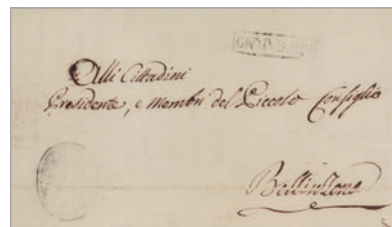 Alli Cittadini
Presidente, e Membri del Piccolo Consiglio
Bellinzona